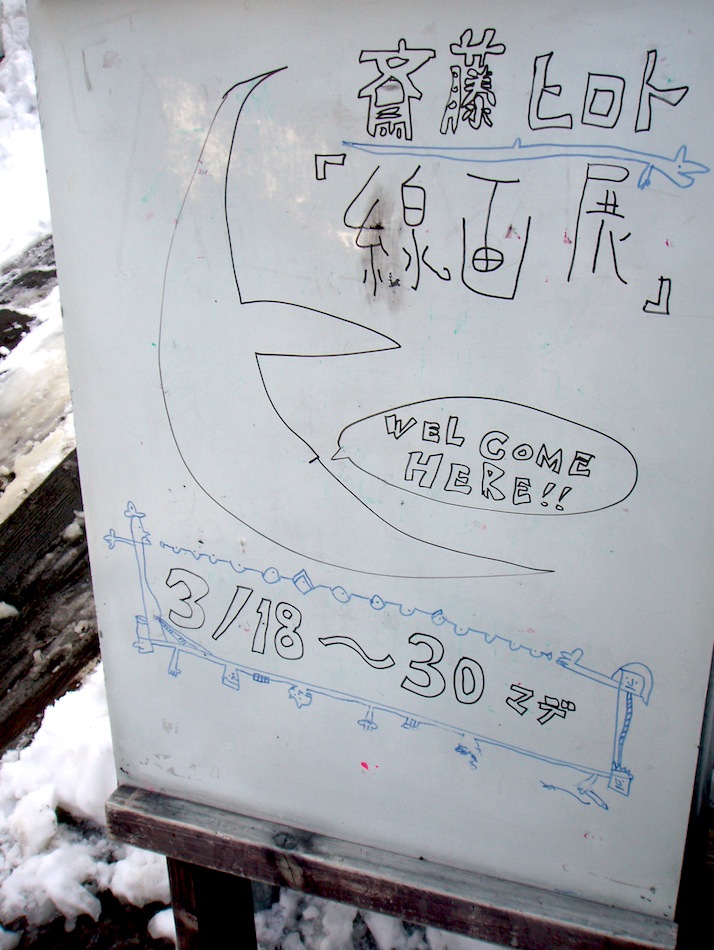 斎藤ヒロト
『線画展』
WELCOME
HERE!!
3/18〜30マデ